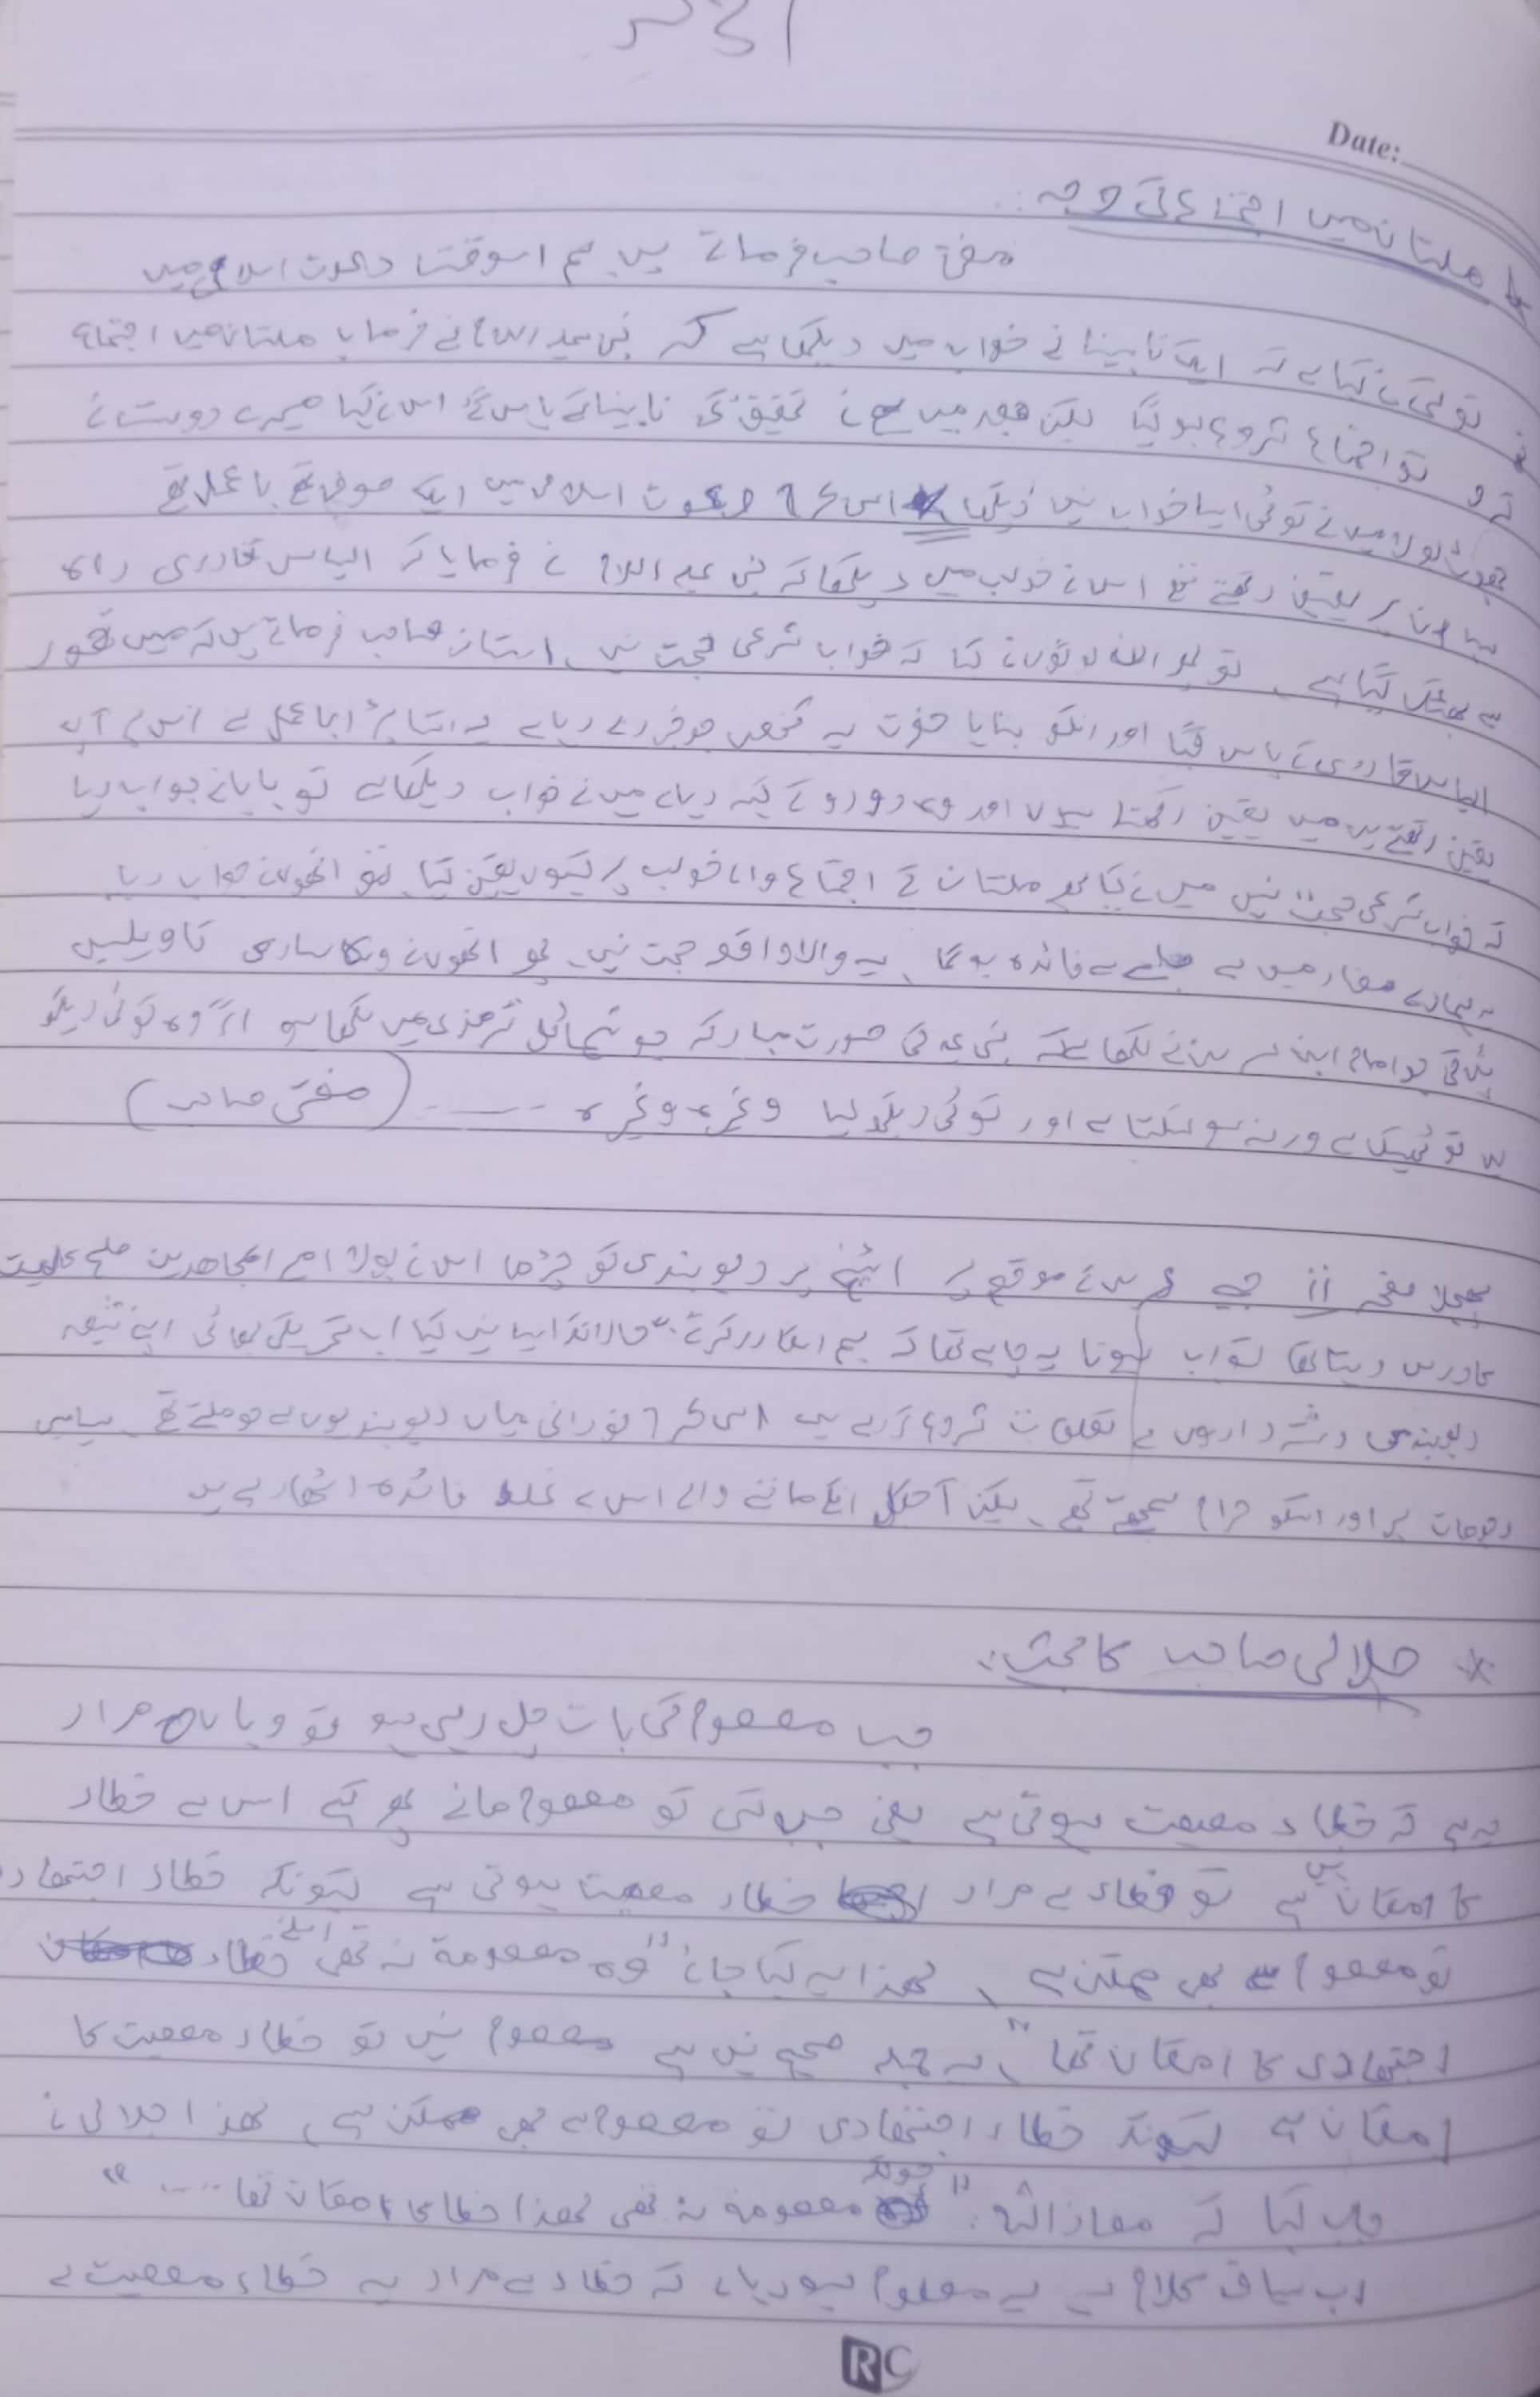 Date:
ملتان میں اجتماع کی وجہ:
مفتی صاحب فرماتے ہیں ہم اسوقت دعوت اسلامی میں
تو کسی نے کہا ہے کہ ایک نابینا نے خواب میں دیکھا ہے کہ نبی علیہ السلام نے فرمایا ملتان میں اجتماع
کرو تو اجتماع شروع ہو گیا لیکن بعد میں ہم نے تحقیق کی نابینا کے پاس گئے اس نے کہا میرے دوست نے
جھوٹ بولا میں نے تو کوئی ایسا خواب نہیں دیکھا اس طرح دعوت اسلامی میں ایک صوفی تھے باعمل تھے
پر یقین رکھتے تھے اس نے خواب میں دیکھا کہ نبی علیہ السلام نے فرمایا کہ الیاس قادری راہ
سے بھٹک گیا ہے۔ تو لوگوں نے کہا کہ خواب شرعی حجت نہیں۔ استاذ صاحب فرماتے ہیں کہ میں خود
الیاس قادری کے پاس گیا اور انکو بتایا حضرت یہ شخص جو خبر دے رہا ہے یہ اتنا بڑا باعمل ہے اس پر آپ
یقین رکھتے ہیں میں یقین رکھتا ہوں اور وہ رو رو کے کہہ رہا ہے میں نے خواب دیکھا ہے تو بابا نے جواب دیا
کہ خواب شرعی حجت نہیں میں نے کہا پھر ملتان کے اجتماع والا خواب پر کیوں یقین کیا۔ تو انھوں نے جواب دیا
یہ ہمارے مفاد میں ہے جس سے فائدہ ہوگا۔ یہ والا واقعہ حجت نہیں۔ پھر انھوں نے ساری تاویلیں
جو امام ابن سیرین نے لکھا ہے کہ نبی ع کی صورت مبارکہ جو شمائل ترمذی میں لکھا ہو اگر وہ کوئی دیکھے
تو ٹھیک ہے ورنہ ہو سکتا ہے اور کوئی دیکھ لیا وغیرہ وغیرہ ------ (مفتی صاحب)
پچھلا صفحہ ii جیسے عرس کے موقع پر اسٹیج پر دیوبندی کو چڑھا اس نے بولا امیر المجاھدین
کا درس دیتا تھا تو اب ہونا یہ چاہیے تھا کہ ہم اسکا رد کرتے۔ حالانکہ ایسا نہیں کیا اب تحریکی بھائی اپنے شیعہ
دیوبندی رشتہ داروں سے تعلقات شروع کر رہے ہیں اس طرح نورانی میاں دیوبندیوں سے جو ملتے تھے۔ سیاسی
وجوہات پر اور اسکو حرام سمجھتے تھے۔ لیکن آجکل انکے ماننے والے اس سے غلط فائدہ اٹھا رہے ہیں
* جلالی صاحب کا بحث:
جب معصوم کی بات چل رہی ہو تو وہاں مراد
یہ ہے کہ خطاء معصیت ہوتی ہے یعنی جب کسی کو معصوم مانے پھر کہے اس سے خطاء
کا امکان نہیں ہے تو خطاء سے مراد خطاء معصیت ہوتی ہے کیونکہ خطاء اجتہاد
تو معصوم سے بھی ممکن ہے، لھذا یہ کہا جائے "وہ معصومۃ نہ تھی اسلئے خطاء
اجتھادی کا امکان تھا" یہ جملہ صحیح نہیں ہے معصوم نہیں تو خطاء معصیت کا
امکان ہے کیونکہ خطاء اجتھادی تو معصوم سے بھی ممکن ہے، لھذا جلالی نے
جب کہا کہ معاذاللہ: "چونکہ معصومہ نہ تھی لھذا خطا کا امکان تھا...."
اب سیاق کلام سے یہ معلوم ہو رہا ہے کہ خطاء سے مراد یہ خطاء معصیت ہے
RC